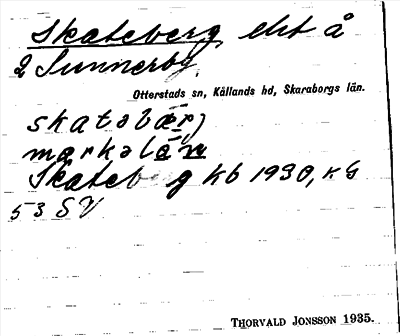 Skateberg, elit å
2 Sunnerby.
Otterstads sn, Kållands hd, Skaraborgs län.
skatabær)
markalän
Skateb g kb 1930, KG
53 SV
THORVALD JONSSON 1935.